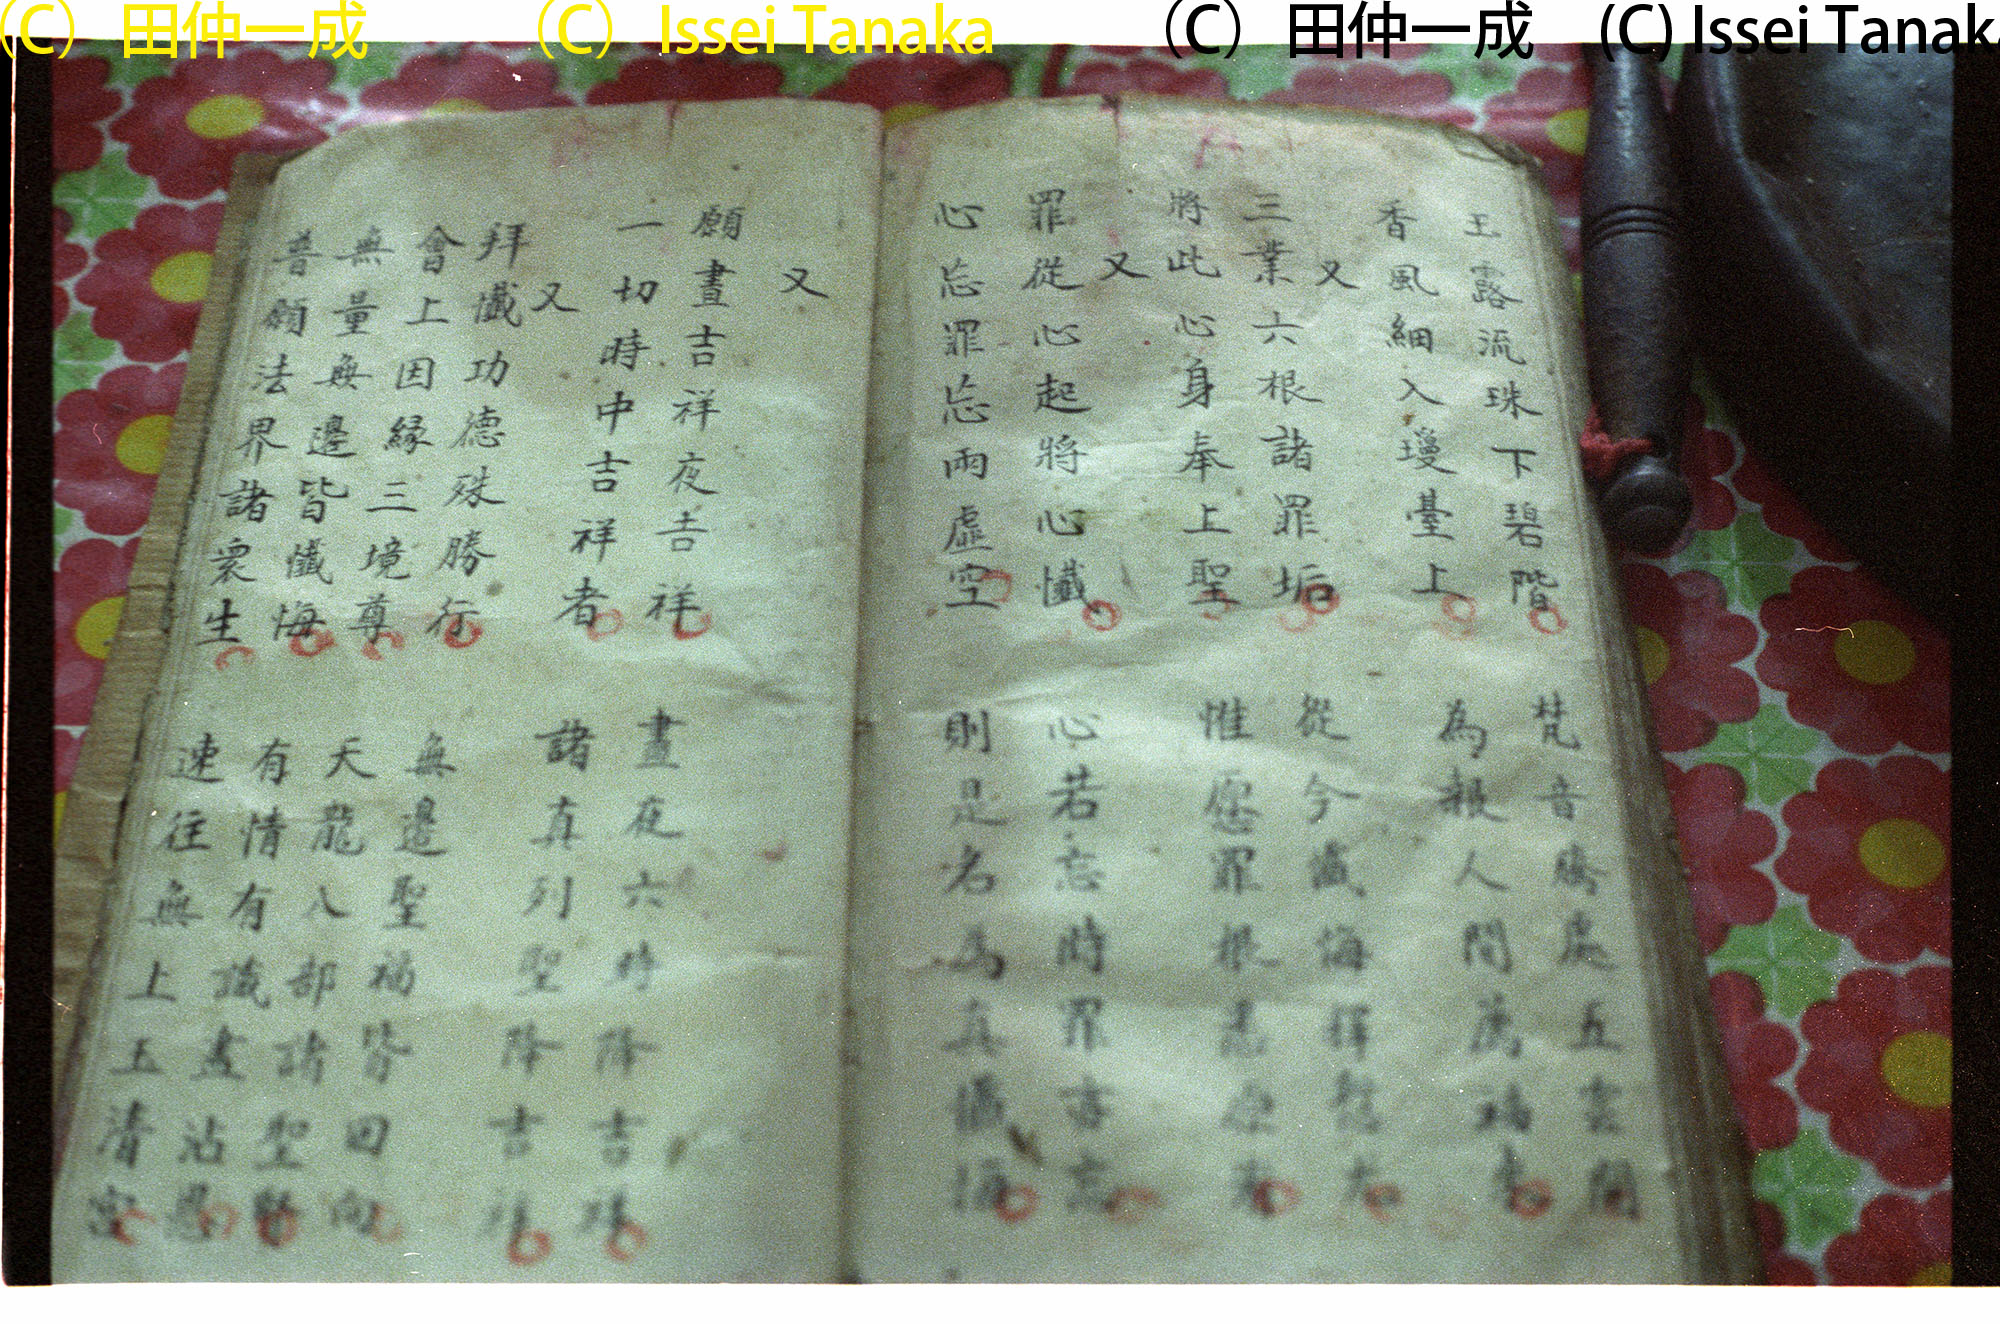 (C) 田仲一成 (C) Issei Tanaka (C) 田仲一成 (C) Issei Tanaka
玉露流珠下碧階 梵音騰處五雲開
香風細入瓊臺上 為報人間萬福來
又
三業六根諸罪垢 從今懺悔
將此心身奉上聖 惟愿罪根悉
又
罪從心起將心懺 心若忘時罪亦忘
心忘罪忘兩虛空 則是名為真懺悔
又
願晝吉祥夜吉祥 晝夜六時降吉祥
一切時中吉祥者 諸真列聖降吉祥
又
拜懺功德殊勝行 無邊聖福皆回向
會上因緣三境尊 天龍八部諸聖賢
無量無邊皆懺悔 有情有識盡沾恩
普願法界諸眾生 速往無上玉清宮